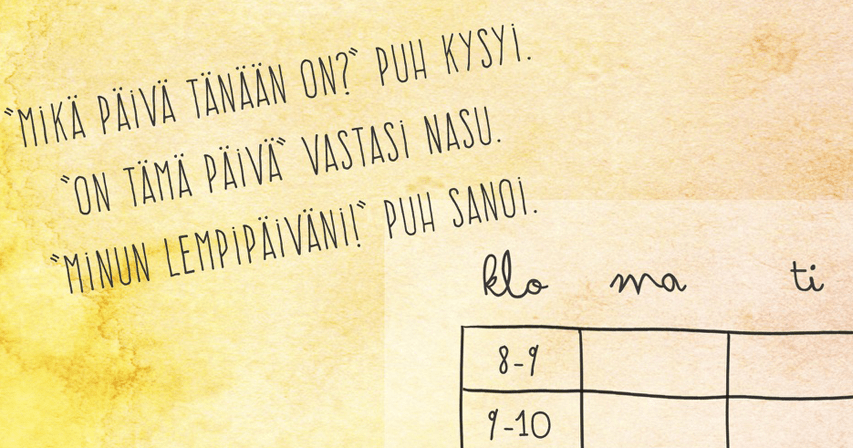 "MiKÄ PÄiVÄ TÄNÄÄN ON?" PUH KYSYi.
"ON TÄMÄ PÄiVÄ" VASTASi NASU.
"MiNUN LEMPiPÄiVÄNi!" PUH SANOi.
klo ma ti
8-9
9-10